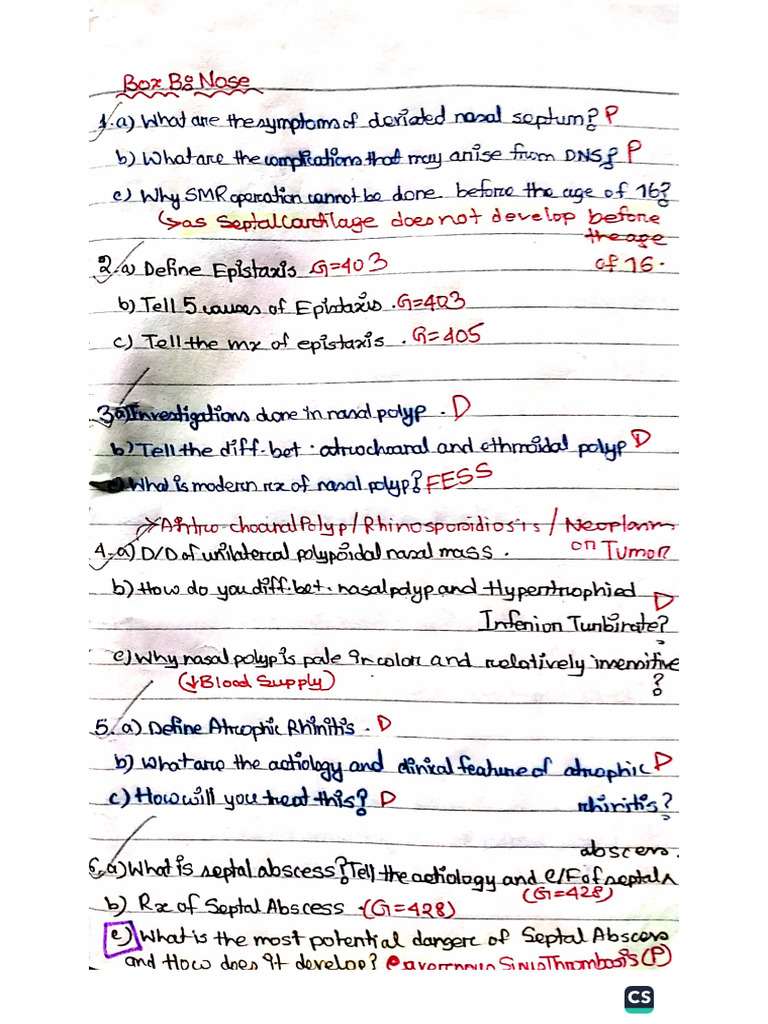 Box B: Nose
1. a) What are the symptoms of deviated nasal septum? P
b) What are the complications that may arise from DNS? P
c) Why SMR operation cannot be done before the age of 16?
↳ as Septal Cartilage does not develop before
the age
of 16.
2. a) Define Epistaxis G=403
b) Tell 5 causes of Epistaxis. G=403
c) Tell the mx of epistaxis. G=405
3 a) Investigations done in nasal polyp. D
b) Tell the diff. bet. antrochoanal and ethmoidal polyp D
c) What is modern rx of nasal polyp? FESS
→ Antro-choanal Polyp / Rhinosporidiosis / Neoplasm
on Tumor
4. a) D/D of unilateral polypoidal nasal mass.
b) How do you diff. bet. nasal polyp and Hypertrophied D
Inferior Turbinate?
c) Why nasal polyp is pale in color and relatively insensitive
?
(↓Blood Supply)
5. a) Define Atrophic Rhinitis. D
b) What are the aetiology and clinical feature of atrophic D
rhinitis?
c) How will you treat this? D
abscess.
6. a) What is septal abscess? Tell the aetiology and C/F of septal ʌ
(G=428)
b) Rx of Septal Abscess. (G=428)
c) What is the most potential danger of Septal Abscess
and How does it develop? Cavernous Sinus Thrombosis (P)
CS